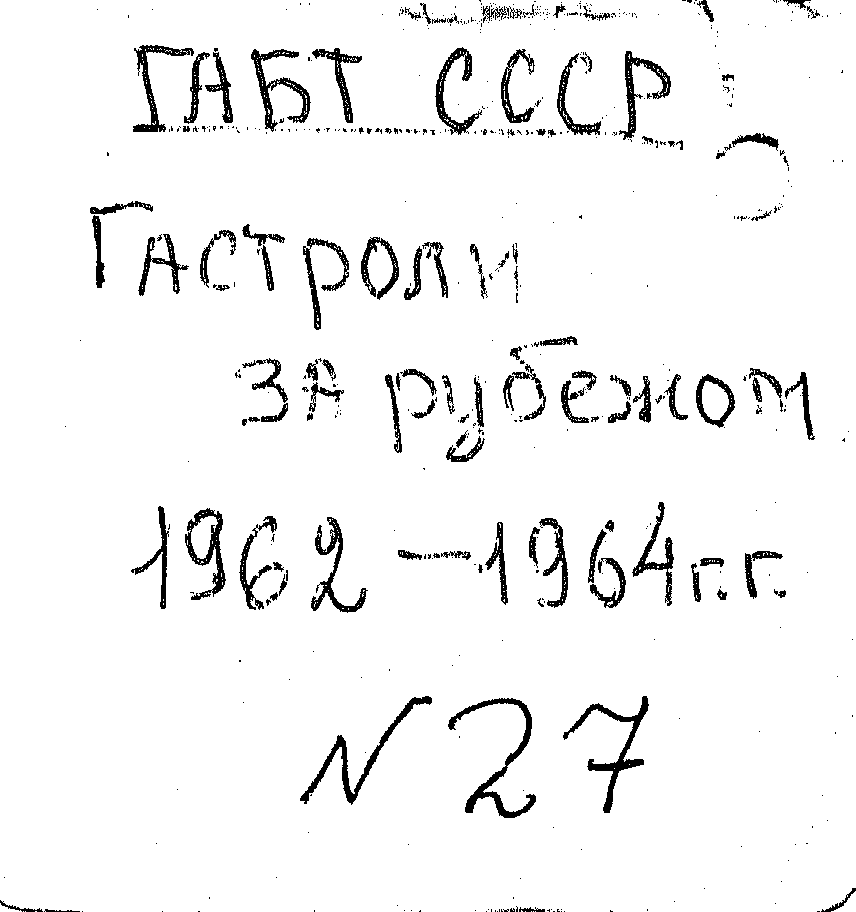 ГАБТ СССР
Гастроли
за рубежом
1962 – 1964 г.г.
N 27